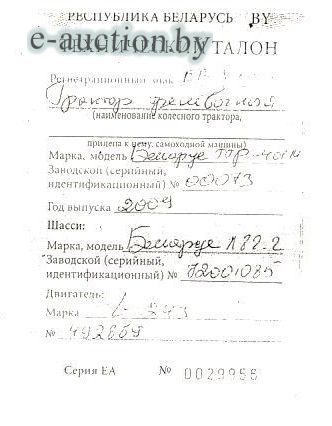 РЕСПУБЛИКА БЕЛАРУСЬ BY
e-auction.by
ТАЛОН
Регистрационный знак
Трактор трелевочный
(наименование колесного трактора,
прицепа к нему, самоходной машины)
Марка, модель Беларус ТТР-401М
Заводской (серийный,
идентификационный) № 00073
Год выпуска 2009
Шасси:
Марка, модель Беларус Л82-2
Заводской (серийный,
идентификационный) № 12001085
Двигатель:
Марка Д-243
№ 492659
Серия ЕА № 0029956